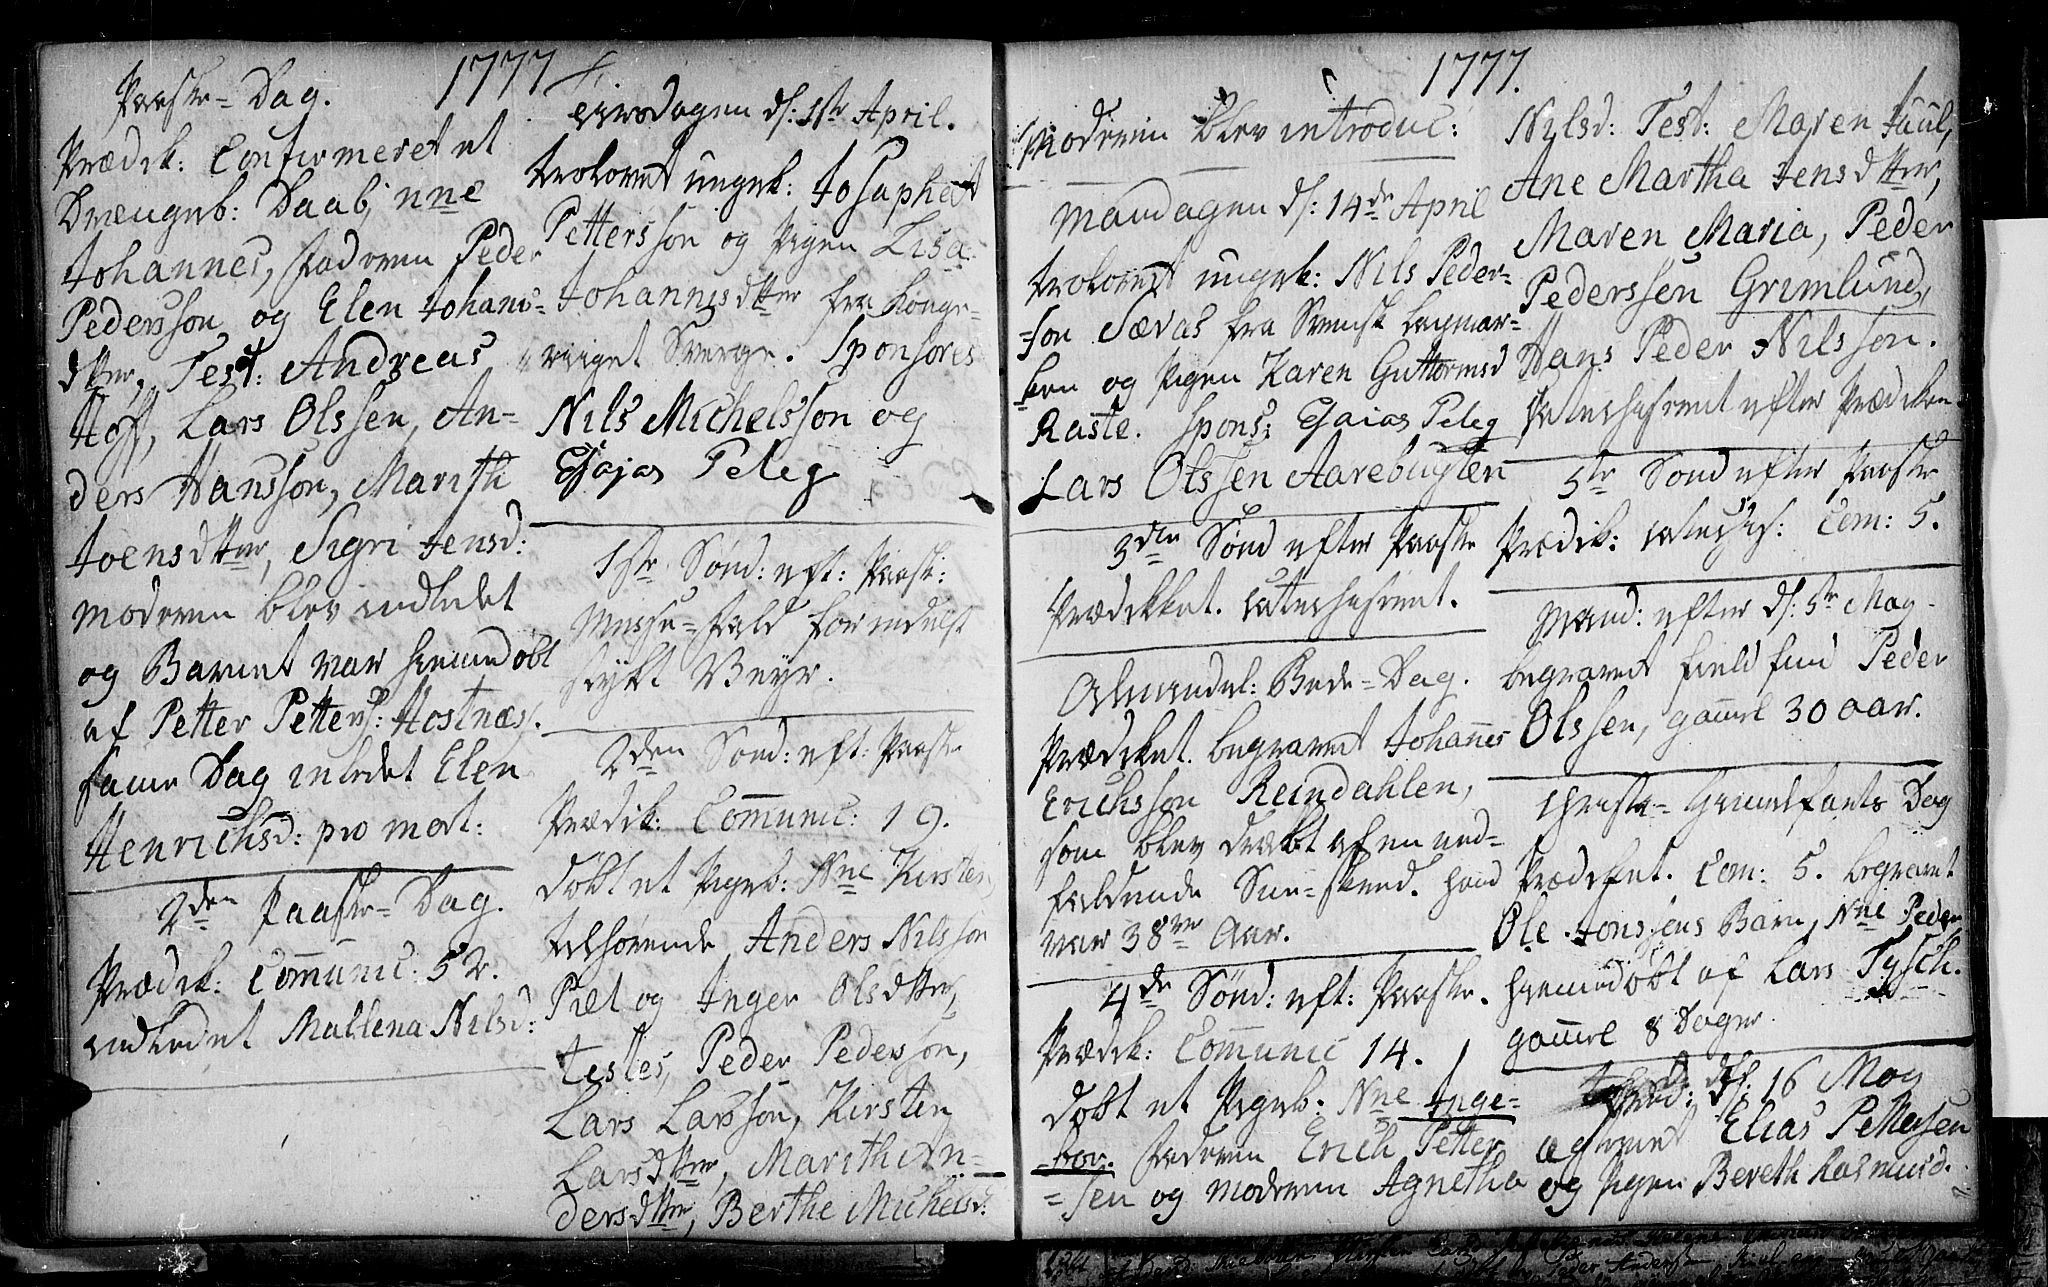 1777
Paaske-Dag.
Prædik: Confirmeret et
Drængeb: Daab, nne
Johannes, faderen Peder
Pedersson og Elen Johans-
dtter, Test: Andreas
Hoff, Lars Olssen, An-
ders Hansson, Marith
Joensdtter, Sigri Jensd:
moderen blev indledet
og Barnet var hiemedøbt
af Petter Petters: Hostnæs.
samme Dag inledet Elen
Henrichsd: pro mort:
2den Paaske-Dag.
Prædik: Communic: 52.
indledet Mallena Nilsd:
Tirsdagen d: 1ste April.
troloved ungek: Josaphat
Pettersson og Pigen Lisa
Johannesdtter fra Konge-
riiget Sverge. Sponsores
Nils Michelsson og
Esajas Peleg
1ste Sond: eft: Paask:
Messe-fald formedelst
stygt Veyr.
2den Sond: eft: Paaske
Prædik: Communic: 19.
døbt et Pigeb: Nne Kirsten
tilhørende Anders Nilsson
Piel og Inger Olsdtter,
testes, Peder Pedersson,
Lars Larsson, Kirsten
Larsdtter, Marith An-
dersdtter, Berthe Michelsd:
1777.
Moderen blev introduc:
Mandagen d: 14de April
troloved ungek: Nils Peder-
son Sævas fra Svensk Lapmar-
ken og Pigen Karen Guttormsd
Raste. Spons: Esaias Peleg
Lars Olssen Aarebugten
3die Sønd efter Paaske
Prædikket. catechiseret.
Almindel: Bede-Dag.
Prædiket. begravet Johannes
Erichsson Reindahlen,
som blev dræbt af en ned-
faldende Snee-skred. hand
var 38ve Aar.
4de Sønd: eft: Paaske.
Prædik: Communic 14.
døbt et Pigeb. Nne Inge-
bor. faderen Erich Petter
-sen og moderen Agnetha
Nilsd: Test: Maren Juul,
Ane Martha Jensdtter,
Maren Maria, Peder
Pederssen Grimlund,
Hans Peder Nilsson.
catechiseret efter Prædiken.
5te Sønd efter Paaske
Prædik: catechis: Com: 5.
Mand: efter d: 5te May
begravet Field fin Peder
Olssen, gaml 30 aar.
Christi-Himmelfarts Dag
Prædiket. Com: 5. begravet
Ole Jonssens Barn, Nne Peder
hiemedøbt af Lars Tysk.
gaml 8 Dage.
d: 16 May
Elias Pettersen
og Pigen Bereth Rasmusd.